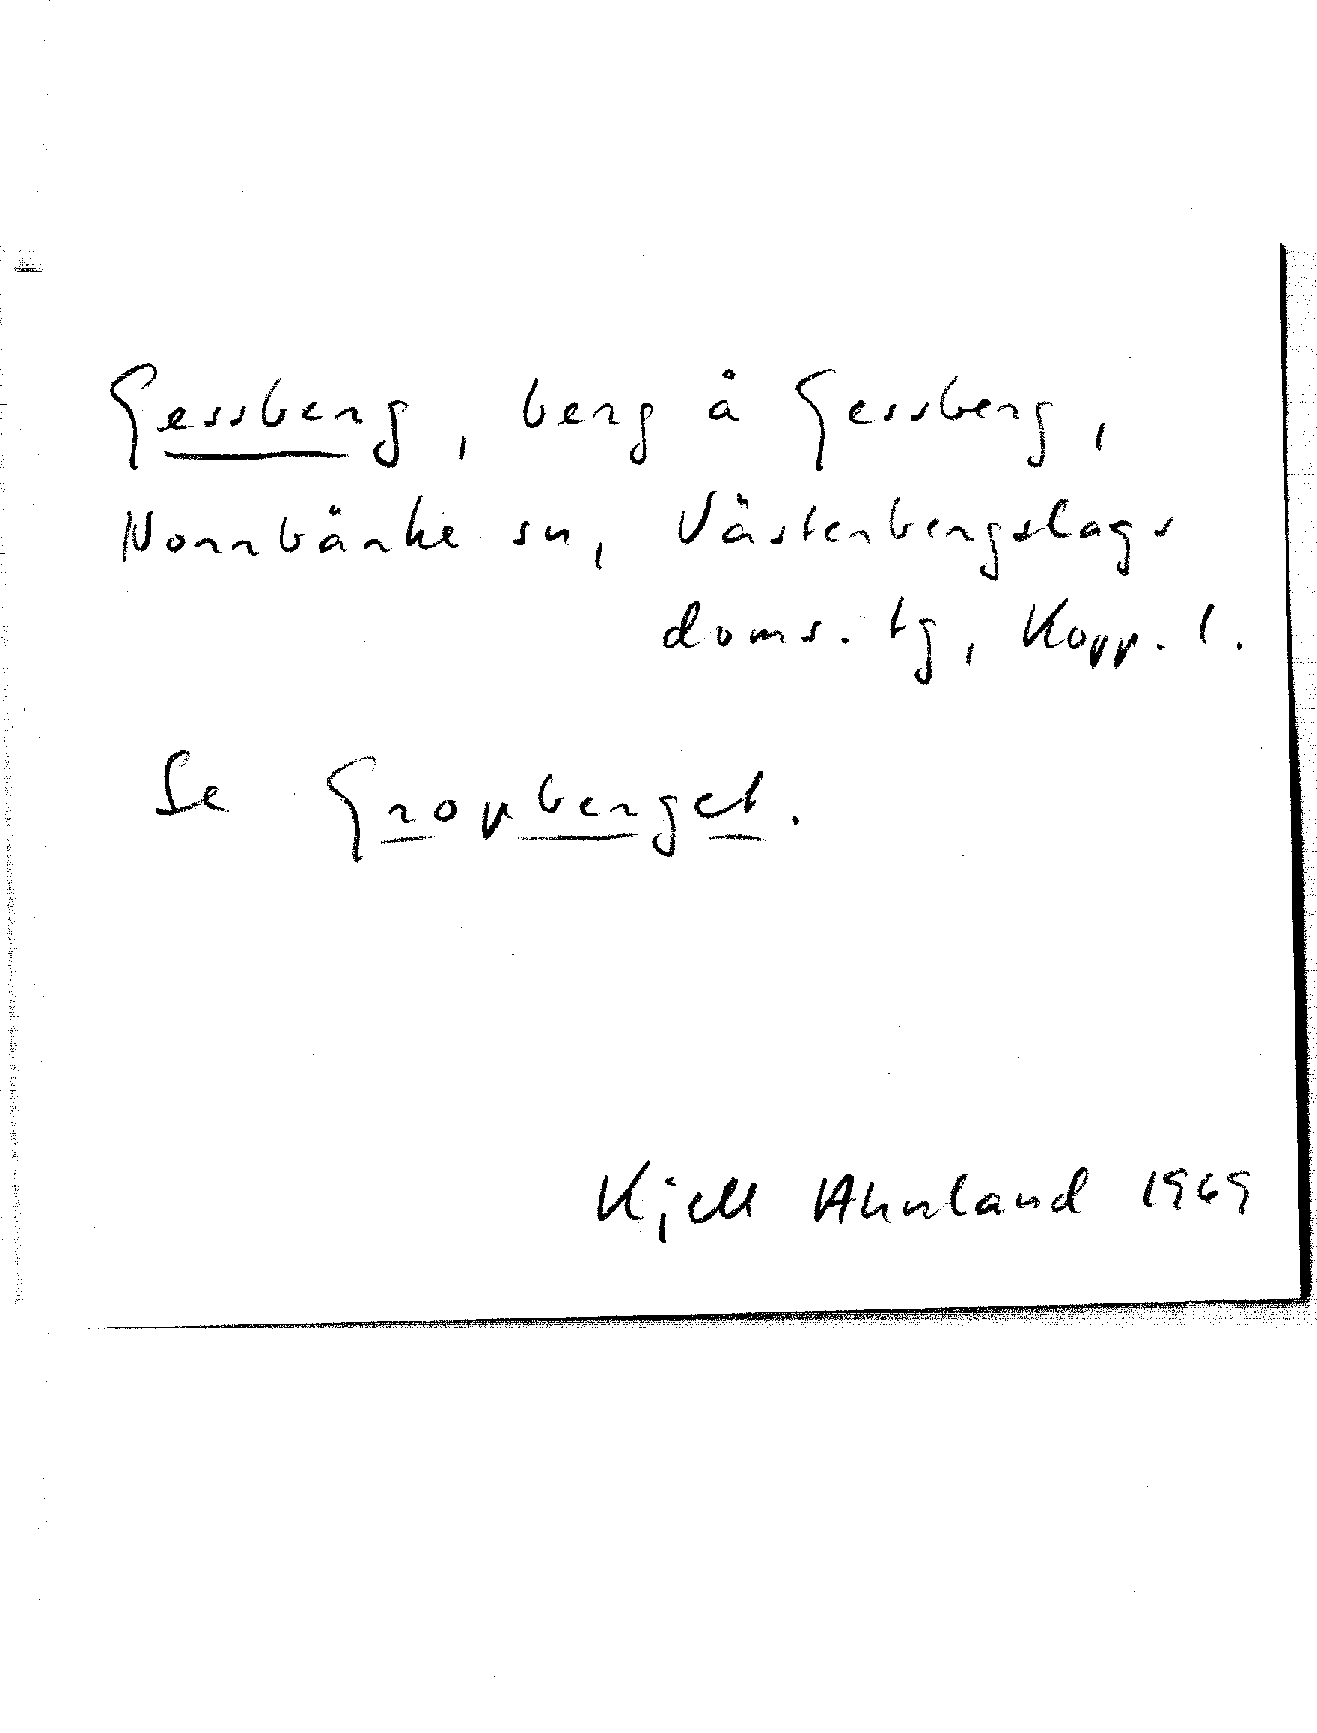 Gessberg, berg å Gessberg,
Norrbärke sn, Västerbergslags
doms. tg, Kopp. l.
Se Gropberget.
Kjell Ahnland 1969